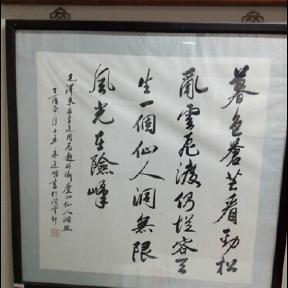 暮色蒼茫看勁松
亂雲飛渡仍從容天
生一個仙人洞無限
風光在險峰
毛澤東為李進同志題所攝廬山仙人洞照